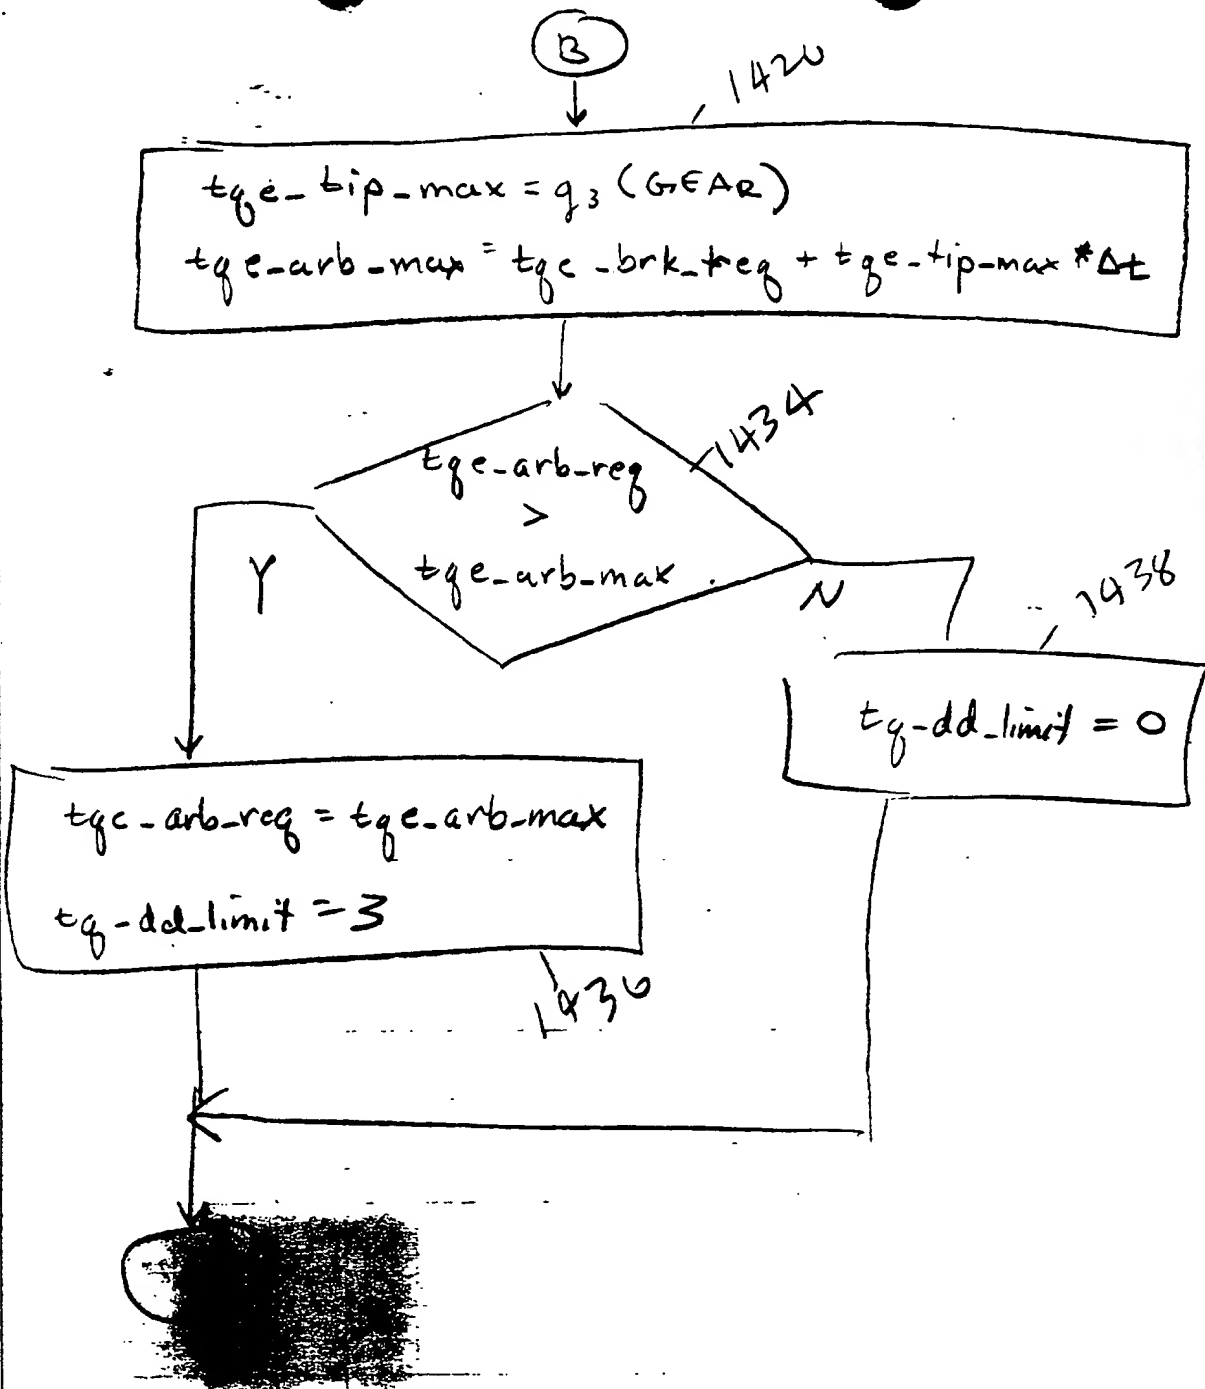 B
1420
tqe_tip_max = g3 (GEAR)
tqe_arb_max = tqe_brk_req + tqe_tip_max * Δt
1434
tqe_arb_req
>
tqe_arb_max
Y
N
1438
tq_dd_limit = 0
tqe_arb_req = tqe_arb_max
tq_dd_limit = 3
1436